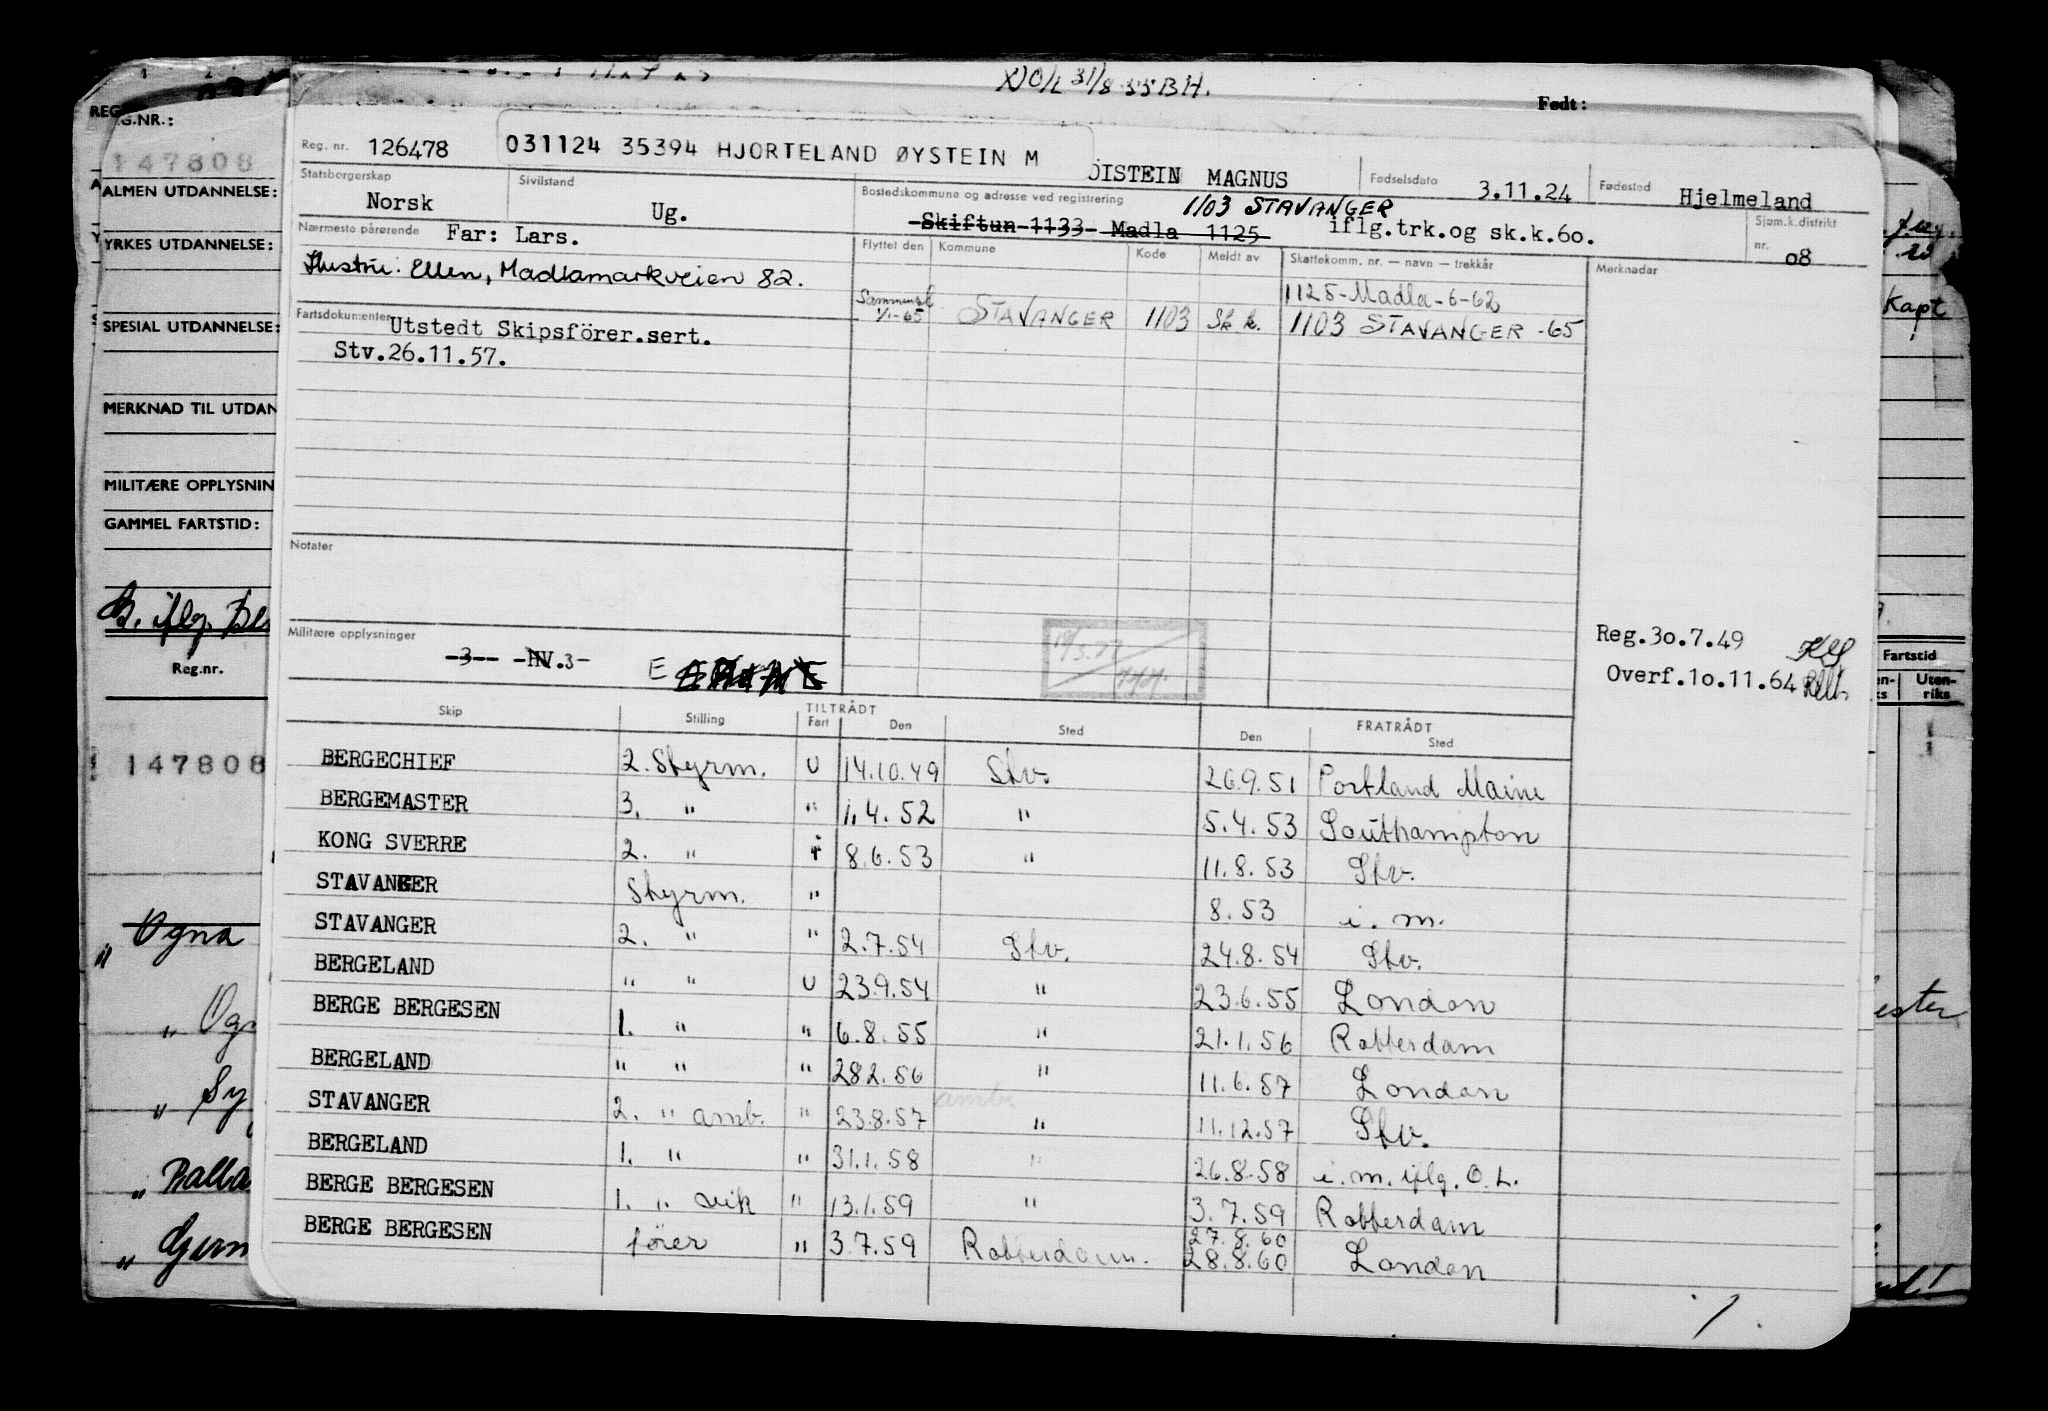 31/8 55 BH.
Født:
REG.NR.:
147808
ALMEN UTDANNELSE:
YRKES UTDANNELSE:
SPESIAL UTDANNELSE:
MERKNAD TIL UTDAN
MILITÆRE OPPLYSNIN
GAMMEL FARTSTID:
B. iflg.
Reg.nr.
147808
" Ogna
Kapt
Fartstid
Uten-
riks
Reg. nr. 126478 031124 35394 HJORTELAND ØYSTEIN M ÖISTEIN MAGNUS Fødselsdato 3.11.24 Fødested Hjelmeland
Statsborgerskap Norsk Sivilstand Ug. Bostedskommune og adresse ved registrering
1103 STAVANGER
Skiftun 1133 Madla 1125 iflg.trk.og sk.k.60. Sjøm.k.distrikt nr. 08
Nærmeste pårørende Far: Lars.
Hustru: Ellen, Madlamarkveien 82.
Flyttet den Kommune Kode Meldt av Skattekomm. nr. — navn — trekkår Merknadar
1125-Madla-6-62
Sammensl. 1/1-65 STAVANGER 1103 Sk.k. 1103 STAVANGER -65
Fartsdokumenter Utstedt Skipsförer.sert.
Stv.26.11.57.
Notater
Militære opplysninger
-3-- -HV.3- E
Reg.30.7.49
Overf.10.11.64
TILTRÅDT FRATRÅDT
Skip Stilling Fart Den Sted Den Sted
BERGECHIEF 2. Styrm. U 14.10.49 Stv. 26.9.51 Portland Maine
BERGEMASTER 3. " " 1.4.52 " 5.4.53 Southampton
KONG SVERRE 2. " i 8.6.53 " 11.8.53 Stv.
STAVANGER Styrm. " 8.53 i.m.
STAVANGER 2. " " 2.7.54 Stv. 24.8.54 Stv.
BERGELAND " " U 23.9.54 " 23.6.55 London
BERGE BERGESEN 1. " " 6.8.55 " 21.1.56 Rotterdam
BERGELAND " " " 28.2.56 " 11.6.57 London
STAVANGER 2. " amb. " 23.8.57 amb. " 11.12.57 Stv.
BERGELAND 1. " " 31.1.58 " 26.8.58 i.m. iflg. O.L.
BERGE BERGESEN 1. " vik " 13.1.59 " 3.7.59 Rotterdam
BERGE BERGESEN förer " 3.7.59 Rotterdam. 27.8.60
28.8.60 London